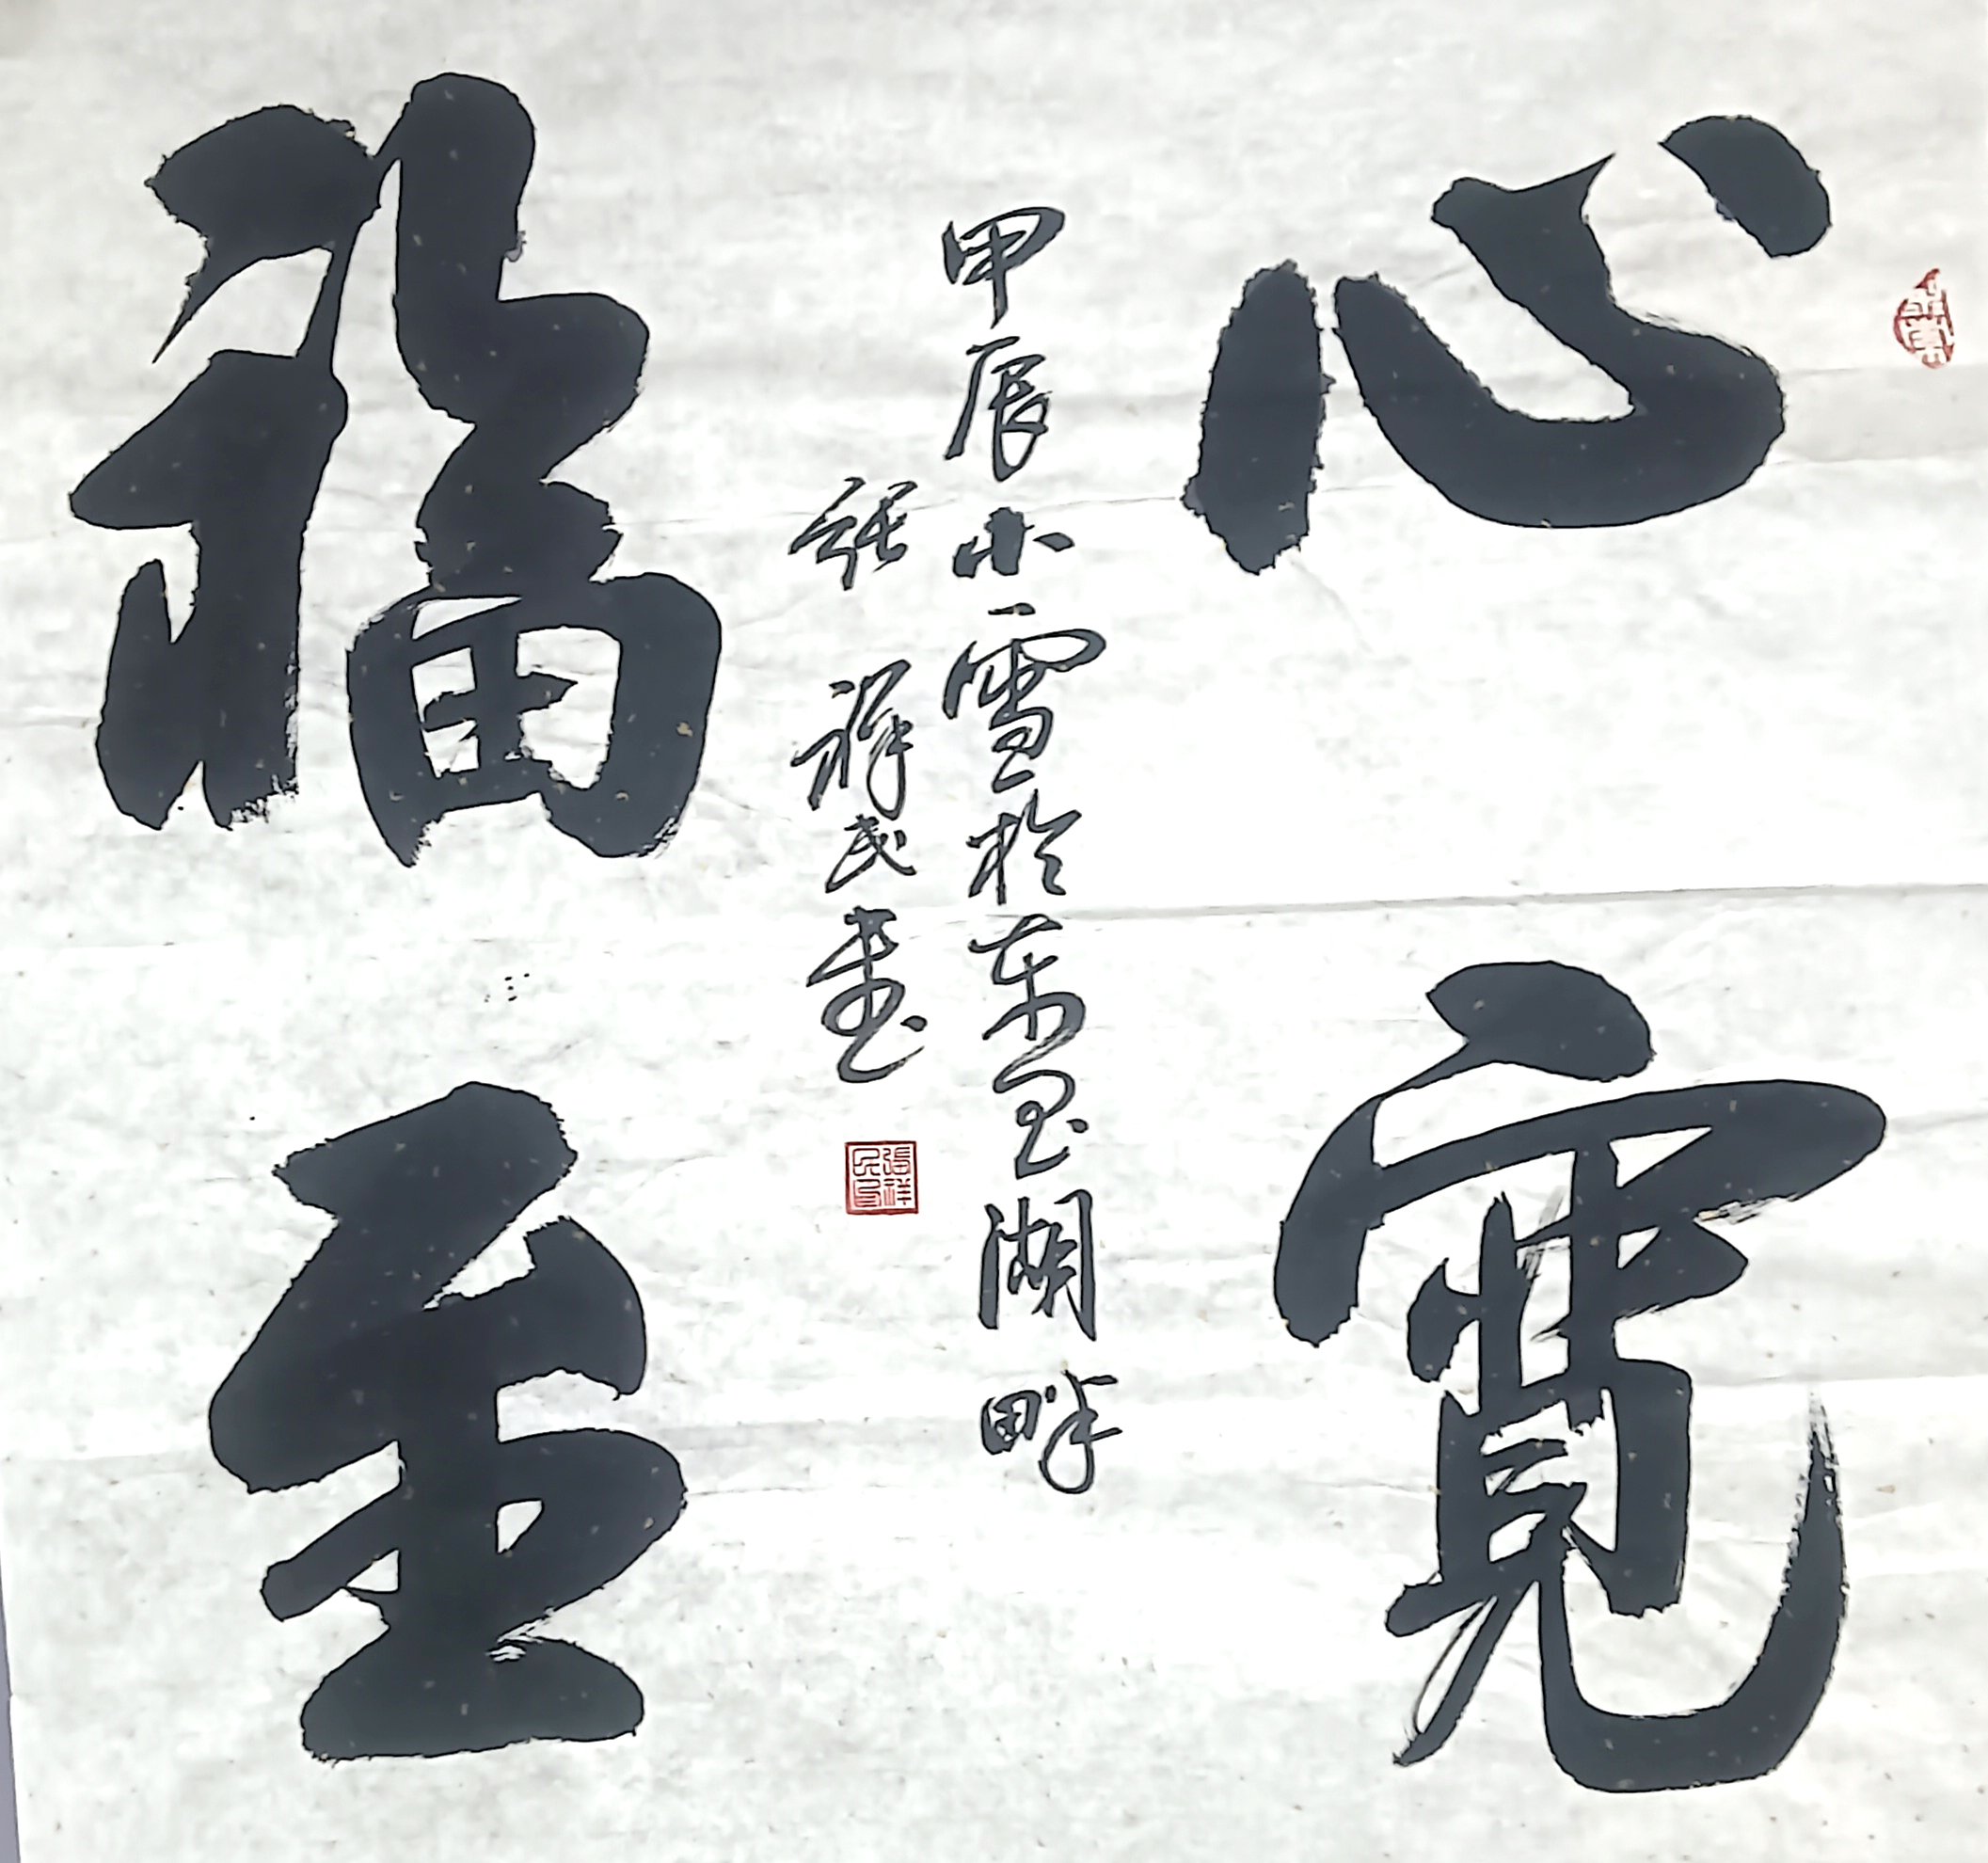 心寬
福至
甲辰小雪於东昌湖畔
张祥民书
張祥民印